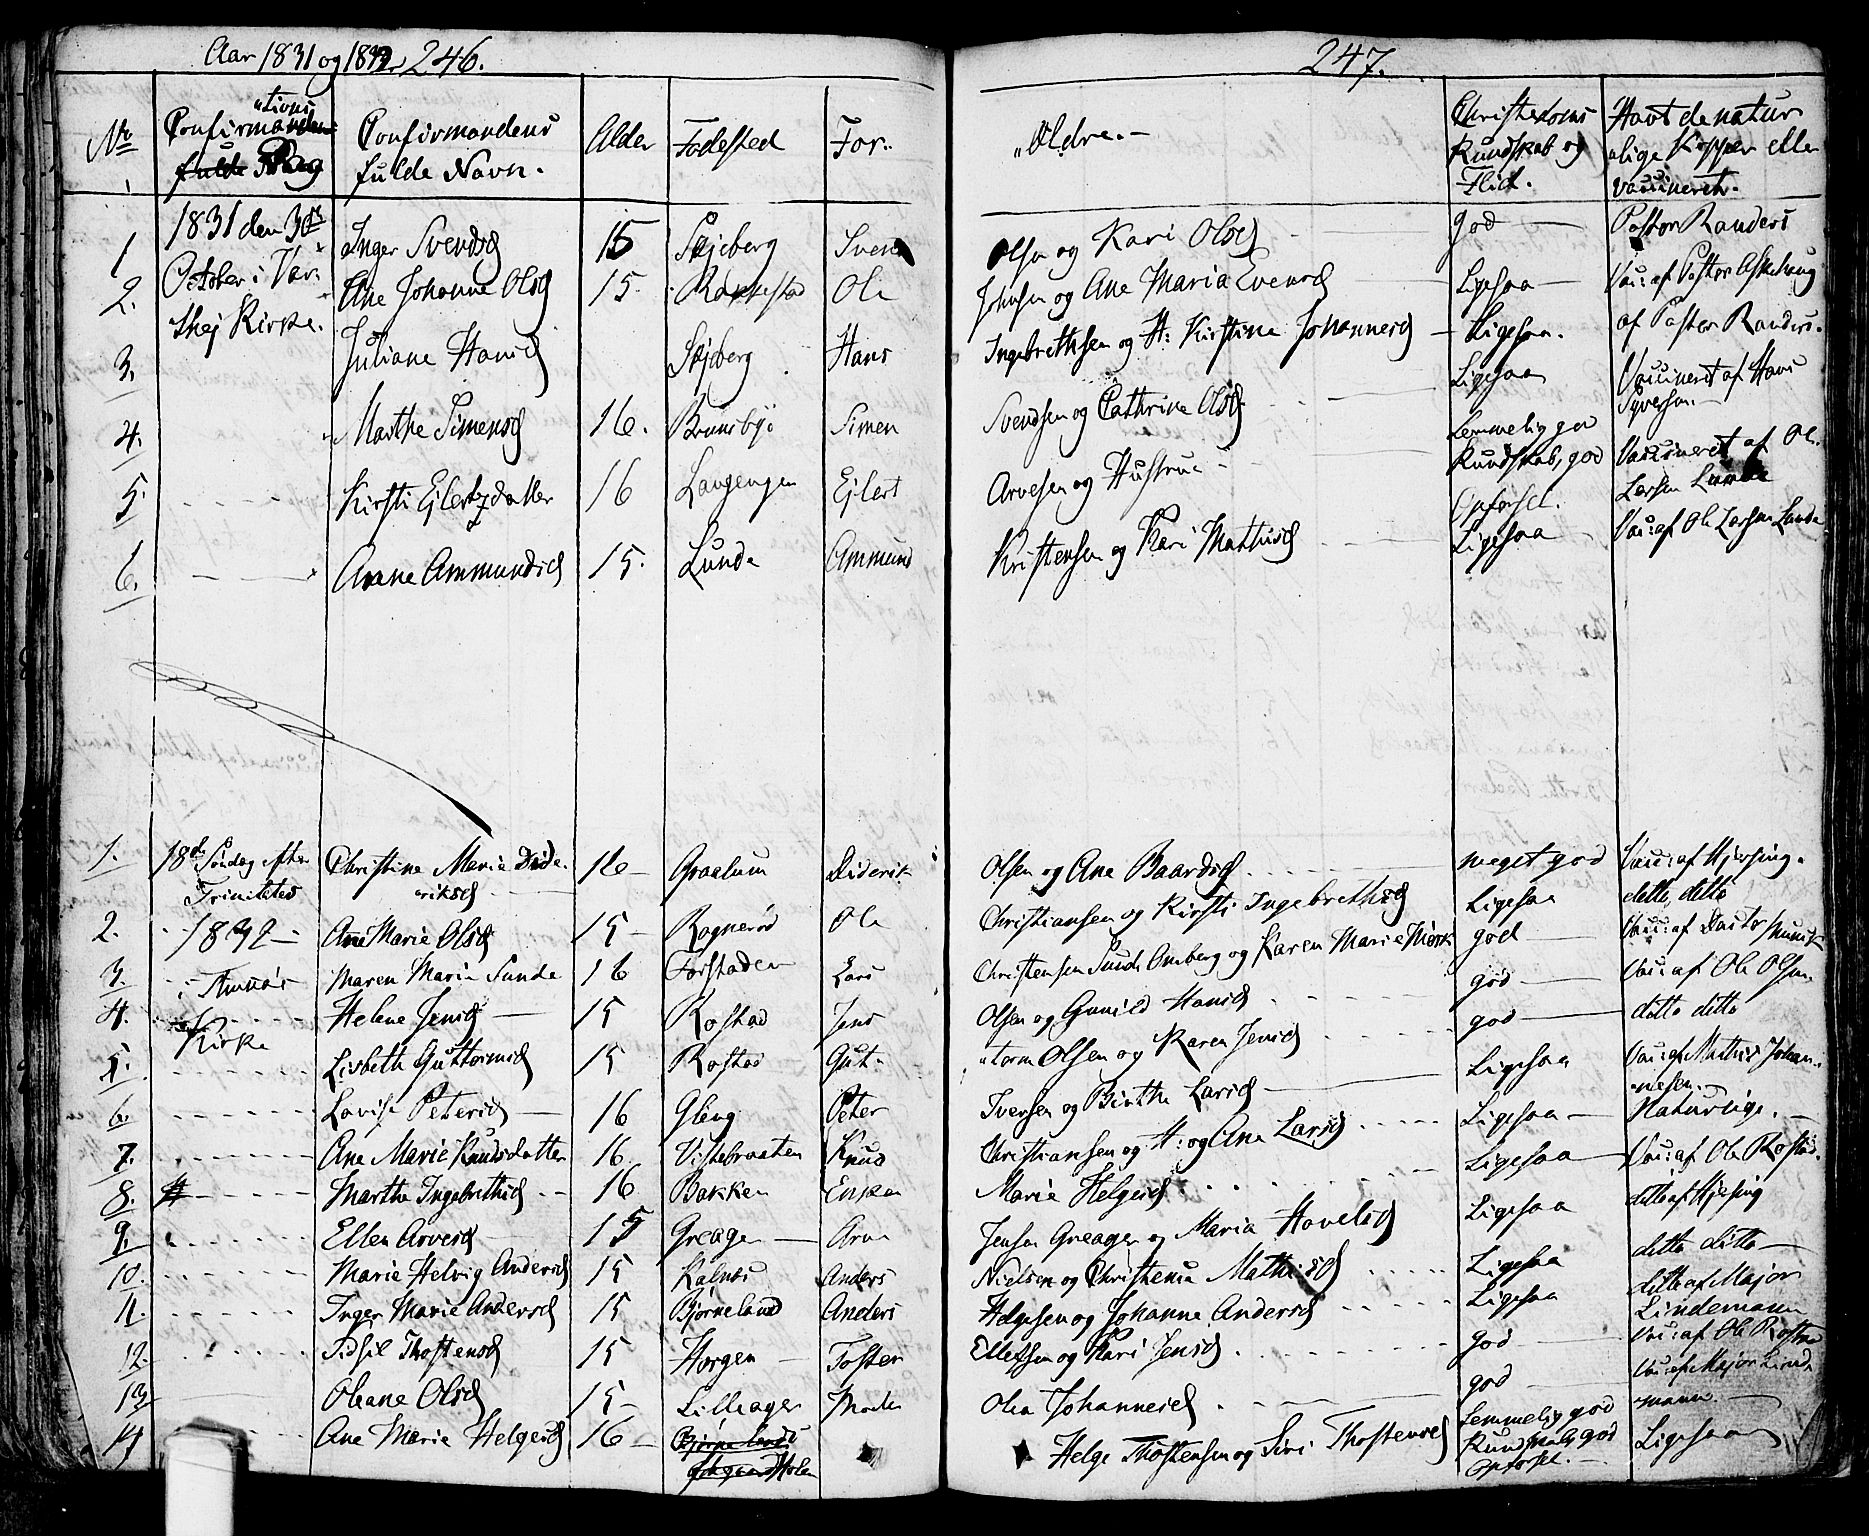 Aar 1831 og 1832. 246.
No
Confirmations
Dag
Confirmandens
fulde Navn.
Alder
Fødested
For-
1831 den 30th
October i Var-
thej Kirke.
1 Inger Svendsd 15 Skjeberg Svend
2. Ane Johanne Olsd 15. Rakkestad Ole
3. Juliane Hansd Skjeberg Hans
4. Marthe Simensd 16. Brunsbye Simen
5. Kirsti Ejlertzdatter 16 Langengen Ejlert
6. Anne Ammundsd 15. Lunde Ammund
1. 18de Søndag efter Christine Marie Dide- 16 Graalum Diderik
Trinitatis "riksd
2. 1832 Ane Marie Olsd 15 Rognerød Ole
3. i Tunøe Maren Marie Sunde 16 Forstaden Lars
4. Helene Jensd 15 Rostad Jens
Kirke
5. Lisbeth Guttormsd 15 Rostad Gut-
6. Lovise Petersd 16 Gleng Peter
7. Ane Marie Knudsdatter 16 Vistebraaten Knud
8. Marthe Ingebrethsd 16 Bakken Enken
9. Ellen Arvesd 15 Greager Arve
10. Marie Helvig Andersd 15 Kalnes Anders
11. Inger Marie Andersd 15 Bjørneland Anders
12. Sidsil Thostensd 15 Horgen Tosten
13 Oleane Olsd 15 Lilleager Moder
14 Ane Marie Helgesd 16 Bjørneland
247.
"ældre.
Christendoms
Kundskab og
Flid.
Havt de natur
"lige Kopper eller
vaccineret.
Olsen og Kari Olsd god Pastor Randers
Johnsen og Ane Maria Evensd Ligesaa Vacc: af Pastor Askehoug
Ingebrethsen og H: Kirstine Johannesd Ligesaa. af Pastor Randers.
Svendsen og Cathrine Olsd Ligesaa Vaccineret af Hans
Syversen
Arvesen og Hustrue Temmelig god
Kundskab, god Vaccineret af Ole
Opførsel. Larsen Lunde
Kristensen og Kari Mathisd Ligesaa Vacc: af Ole Larsen Lunde
Olsen og Ane Baardsd meget god Vacc: af Hjersing
Christiansen og Kirsti Ingebrethsd Ligesaa ditto, ditto
Christensen Sunde og Karen Marie god Vacc: af Munck
Olsen og Gunild Hansd god Vacc: af Ole Olsen
"torm Olsen og Karen Jensd god ditto ditto
Iversen og Birthe Larsd Ligesaa Vacc: af Mathis Johan-
nesen.
Christiansen og H: og Ane Larsd Ligesaa Naturlige.
Marie Helgesd Ligesaa Vacc: af Ole Rostad.
Jensen Greager og Maria Hovelsd Ligesaa ditto af Hjersing
Nielsen og Christense Mathisd Ligesaa ditto ditto
Helgesen og Johanne Andersd Ligesaa ditto af Major
Lindemann
Ellefsen og Kari Jensd god Vacc: af Ole Rostad
Olea Johannesd god Vacc: af Major Linde
mann.
Helge Thostensen og Siri Thostensd Temmelig god
Kundskab, god Ligesaa
Opførsel.